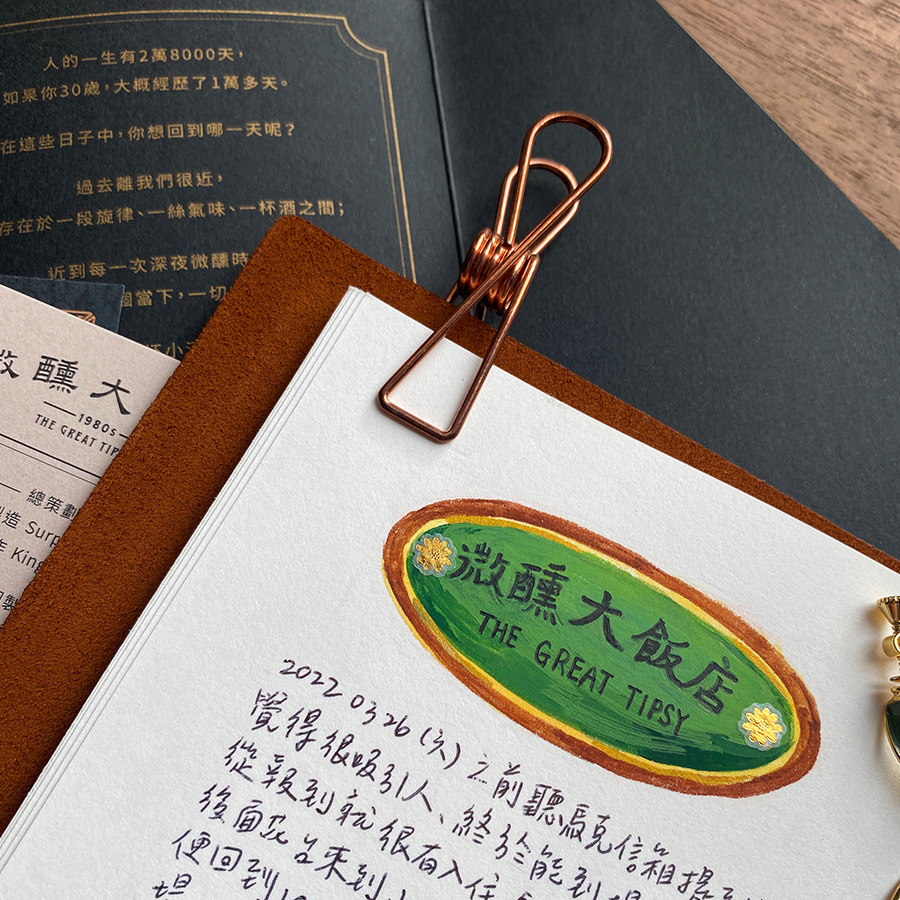 人的一生有2萬8000天，
如果你30歲，大概經歷了1萬多天。
在這些日子中，你想回到哪一天呢？
過去離我們很近，
存在於一段旋律、一絲氣味、一杯酒之間；
近到每一次深夜微醺時
當下，一切
微醺大
1980s
THE GREAT TIP
總策劃
造 Surp
作 King
製
微醺大飯店
THE GREAT TIPSY
2022 0326 (六) 之前聽
覺得很吸引人、終於能到
從報到就很有入住
後面
來到
便回到